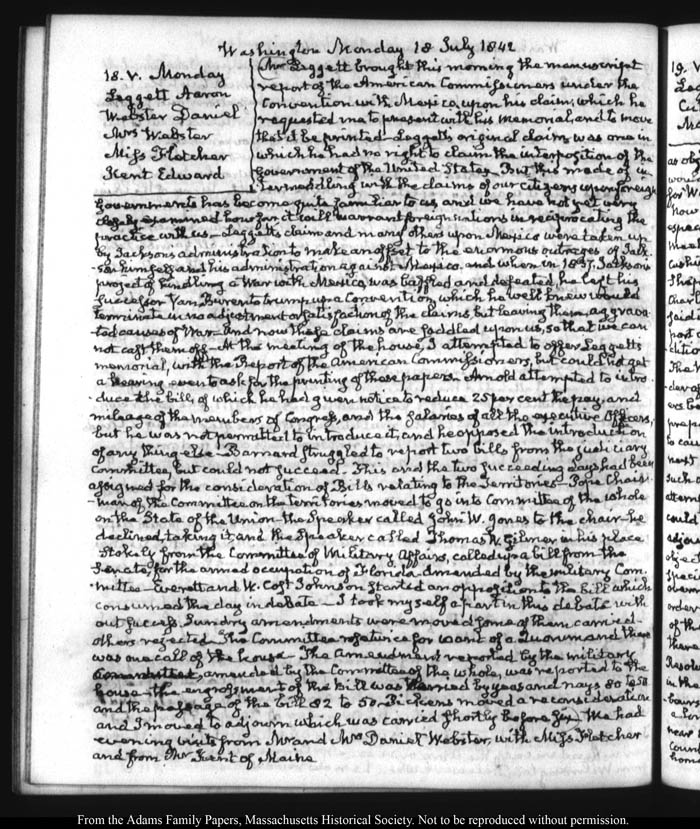 Washington Monday 18 July 1842
18. V. Monday
Leggett Aaron
Webster Daniel
Mrs Webster
Miss Fletcher
Kent Edward
Mr Leggett brought this morning the manuscript
report of the American Commissioners under the
Convention with Mexico, upon his claim, which he
requested me to present with his memorial, and to move
that it be printed. Leggett's original claim was one in
which he had no right to claim the interposition of the
Government of the United States. But this mode of in-
termeddling with the claims of our Citizens upon foreign
Governments has become quite familiar to us, and we have not yet very
closely examined how far it will warrant foreign nations in reciprocating the
practice with us. Leggett's claim and many others upon Mexico were taken up
by Jackson's administration to make an offset to the enormous outrages of Jack-
son himself and his administration against Mexico, and when in 1837. Jackson's
project of kindling a War with Mexico was baffled and defeated, he left his
successor Van Buren to trump up a Convention, which he well knew would
terminate in no adjustment or satisfaction of the claims, but leaving them aggrava-
ted causes of War. And now these claims are saddled upon us, so that we can
not cast them off. At the meeting of the house, I attempted to offer Leggett's
memorial, with the Report of the American Commissioners, but could not get
a hearing even to ask for the printing of those papers. Arnold attempted to intro-
duce the bill, of which he had given notice to reduce 25 per cent the pay, and
mileage of the members of Congress, and the salaries of all the executive Officers,
but he was not permitted to introduce it, and he opposed the introduction
of any thing else. Barnard struggled to report two bills from the judiciary
Committee, but could not succeed. This and the two succeeding days had been
assigned for the consideration of Bills relating to the Territories. Pope Chair-
man of the Committee on the territories moved to go into Committee of the whole
on the State of the Union. the Speaker called John W. Jones to the chair. he
declined taking it, and the Speaker called Thomas W. Gilmer in his place
Stokely from the Committee of Military Affairs, called up a bill from the
Senate, for the armed occupation of Florida amended by the military Com-
mittee. Everett and W. Cost Johnson started an opposition to the bill which
consumed the day in debate. I took myself a part in this debate with
out success. Sundry amendments were moved some of them carried
others rejected. The Committee rose twice for want of a Quorum and there
was one call of the house. The amendment reported by the military
Committee, amended by the Committee of the whole, was reported to the
house. the engrossment of the bill was carried by yeas and nays 80 to 50
and the passage of the bill 82 to 50. Pickens moved a reconsideration
and I moved to adjourn which was carried shortly before six. We had
evening visits from Mr and Mrs Daniel Webster, with Miss Fletcher
and from Mr Kent of Maine
From the Adams Family Papers, Massachusetts Historical Society. Not to be reproduced without permission.